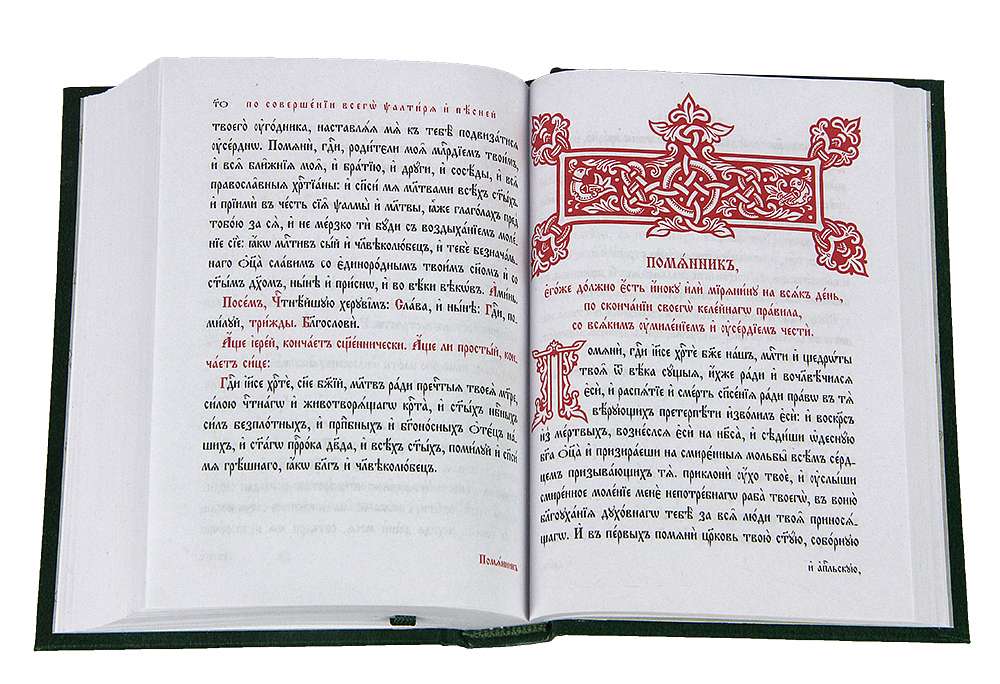 то҃ по совершенїи всегѡ ѱалтирѧ и҆ пѣсней
твоегѡ ᲂу҆годника, наставлѧѧ мѧ̀ къ тебѣ̀ подвизатисѧ
ᲂу҆сердиѡ. Помѧнѝ, гдⷭ҇и, родители моѧ̑ млⷭ҇рдїемъ твоимъ,
и҆ всѧ̑ ближнїѧ моѧ̑, и҆ братїю, и҆ други, и҆ сосѣды, и҆ всѧ̑
православныѧ хрⷭ҇тїаны: и҆ спⷭ҇си мѧ̀ млт҃вами всѣхъ ст҃ыхъ,
и҆ прїими въ честь сїѧ̑ ѱалмы̀ и҆ млт҃вы, ꙗ҆̀же глаголахъ пред
тобою за сѧ̀, и҆ не мерзко ти̑ буди съ воздыханїемъ моле-
нїе сїѐ: ꙗ҆́кѡ млⷭ҇тивъ сый и҆ чл҃вѣколюбецъ, и҆ тебѐ безначаль-
наго ѻ҆ц҃а̀ славимъ со є҆динороднымъ твоимъ сн҃омъ и҆ со
ст҃ымъ дх҃омъ, нынѣ и҆ приснѡ, и҆ во вѣки вѣкѡвъ. А҆минь.
Посемъ, Чⷭ҇тнѣйшую херувїмъ: Слава, и҆ нынѣ: Гдⷭ҇и, по-
милуй, трижды. Бл҃гословѝ.
А҆́ще і҆ерей, кончаетъ сщ҃еннически. А҆́ще ли простый, кон-
чаетъ сице:
Гдⷭ҇и і҆и҃се хрⷭ҇тѐ, сн҃е бж҃їй, млт҃въ ради пречⷭ҇тыѧ твоеѧ̀ мт҃ре,
силою чⷭ҇тнагѡ и҆ животворѧщагѡ крⷭ҇та̀, и҆ ст҃ыхъ нбⷭ҇ныхъ
силъ безплотныхъ, и҆ прпⷣбныхъ и҆ бг҃оносныхъ ѻ҆тєцъ на-
шихъ, и҆ ст҃агѡ прⷪ҇рока дв҃да, и҆ всѣхъ ст҃ыхъ, помилуй и҆ спⷭ҇сѝ
мѧ̀ грѣшнаго, ꙗ҆́кѡ бл҃гъ и҆ чл҃вѣколюбецъ.
Помѧ́нникъ
ПОМѦ́ННИКЪ,
є҆гѡже должно є҆́сть и҆́ноку и҆лѝ мїрѧнину на всѧкъ день,
по скончанїи своегѡ келейнагѡ правила,
со всѧкимъ ᲂу҆миленїемъ и҆ ᲂу҆сердїемъ честѝ.
Помѧнѝ, гдⷭ҇и і҆и҃се хрⷭ҇тѐ бж҃е нашъ, млⷭ҇ти и҆ щедрѡты
твоѧ̑ ѿ вѣка сущыѧ, и҆́хже ради и҆ вочл҃вѣчилсѧ
є҆сѝ, и҆ распѧ́тїе и҆ смерть спⷭ҇сенїѧ ради правѡ въ тѧ̀
вѣрующихъ претерпѣти и҆зволилъ є҆сѝ: и҆ воскрⷭ҇съ
и҆з̾ мертвыхъ, вознеслсѧ є҆сѝ на нб҃са̀, и҆ сѣдиши ѡ҆десную
бг҃а ѻ҆ц҃а̀ и҆ призираеши на смиренныѧ мольбы всѣмъ сер-
цемъ призывающихъ тѧ̀. приклонѝ ᲂу҆́хо твоѐ, и҆ ᲂу҆слыши
смиренное моленїе менѐ непотребнагѡ раба̀ твоегѡ, въ воню
бл҃гоуханїѧ духовнагѡ тебѣ̀ за всѧ̑ люди твоѧ̑ приносѧ-
щагѡ. И҆ въ первыхъ помѧнѝ цр҃ковь твою ст҃ую, соборную
и҆ а҆пⷭ҇льскую,